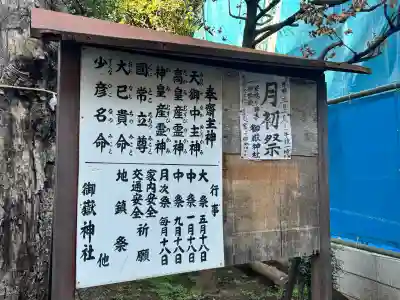 奉斎主神
天御中主神
高皇産霊神
神皇産霊神
国常立尊
大己貴命
少彦名命
行事
大祭 五月十八日
中祭 一月十八日
中祭 九月十八日
月次祭 毎月十八日
家内安全
交通安全
祈願
地鎮祭
他
御嶽神社
月初祭
御嶽神社